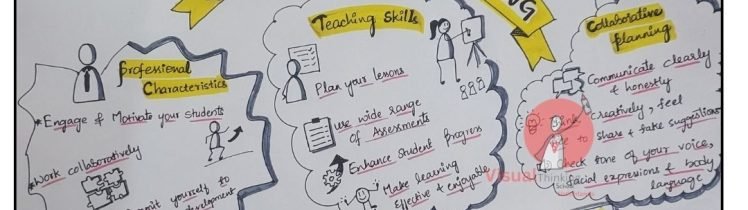 Professional
Characteristics
*Engage & Motivate your students
*Work collaboratively
yourself to
Teaching Skills
Plan your lessons
use wide range
of Assessments
Enhance Student Progress
Make learning
effective & enjoyable
Collaborative
planning
Communicate clearly
& honestly
Think creatively, feel
to share & take suggestions
Check tone of your voice,
facial expressions & body
language
Visual
Think